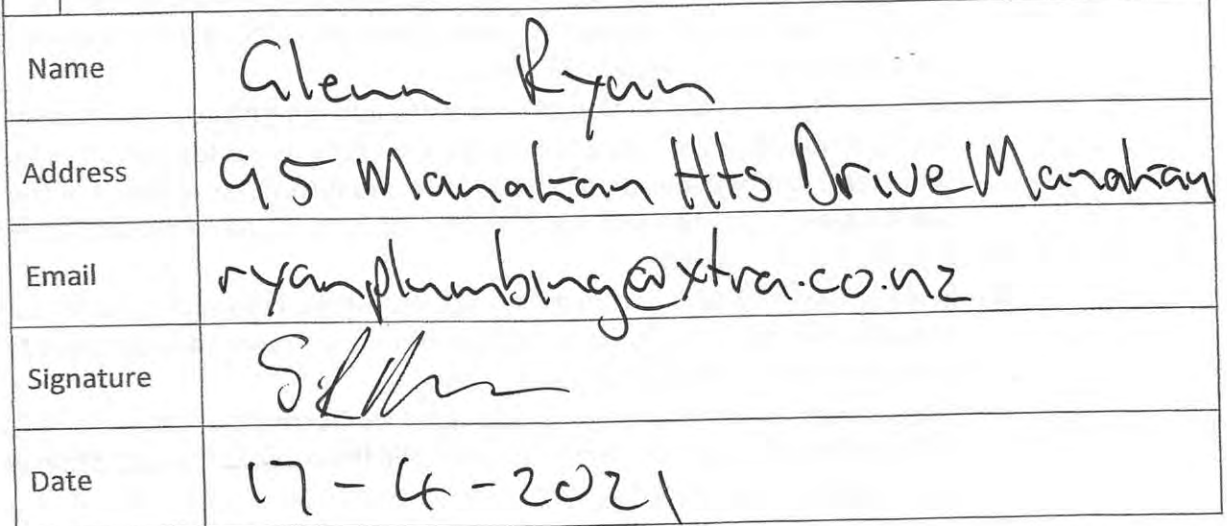 Name Glenn Ryan
Address 95 Manakau Hts Drive Manakau
Email ryanplumbing@xtra.co.nz
Signature
Date 17-4-2021